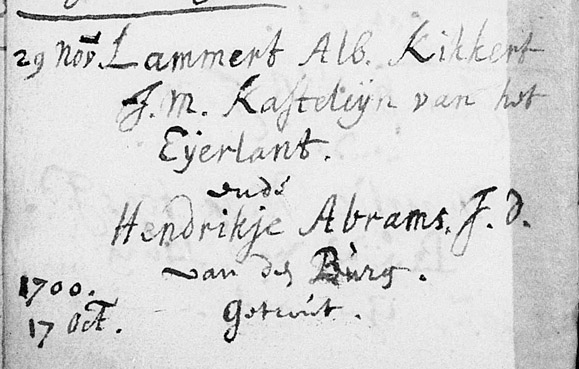 29 Nov. Lammert Alb. Kikkert
J. M. Kasteleijn van het
Eyerlant.
ende
Hendrikje Abrams. J. d.
van der Burg.
1700.
17 Oct. getrout.